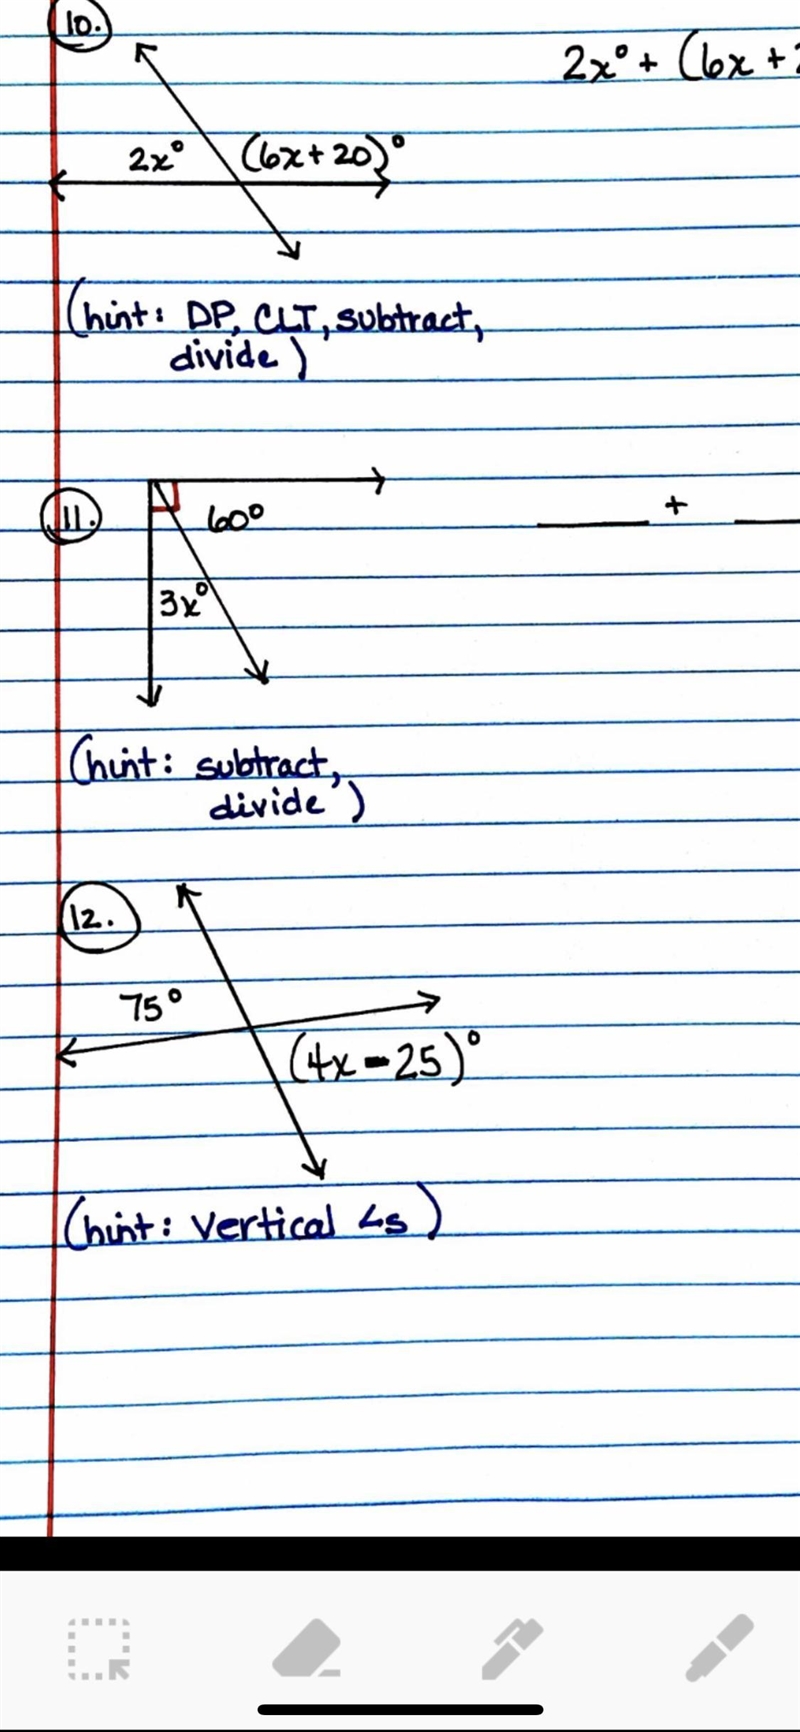 10.
2x° + (6x + 2
2x° (6x + 20)°
(hint: DP, CLT, subtract,
divide)
11.
60°
____ + ____
3x°
(hint: subtract,
divide)
12.
75°
(4x - 25)°
(hint: vertical ∠s)